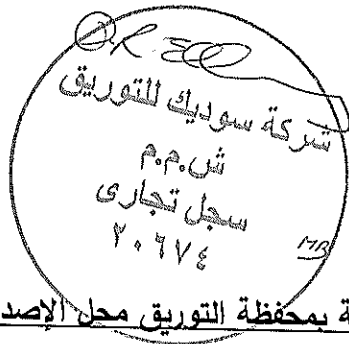 شركة سوديك للتوريق
ش.م.م
سجل تجارى
٢٠٦٧٤
MB
ة بمحفظة التوريق محل الإصد